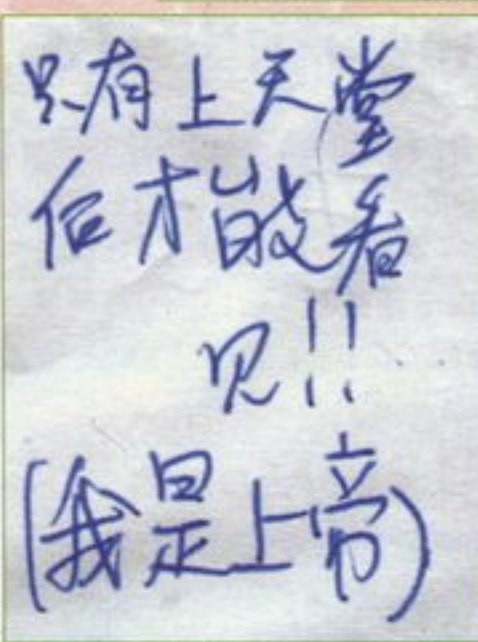 只有上天堂
后才能看
见!!
(我是上帝)